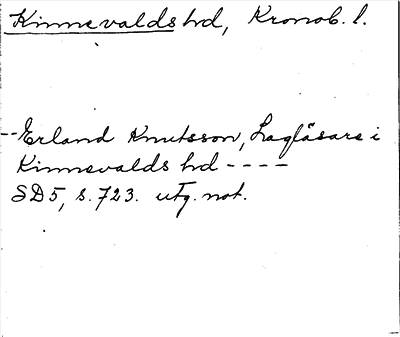 Kinnevalds hd, Kronob. l.
-- Erland Knutsson, Lagläsare i
Kinnevalds hd ----
SD5, s. 723. utg. not.